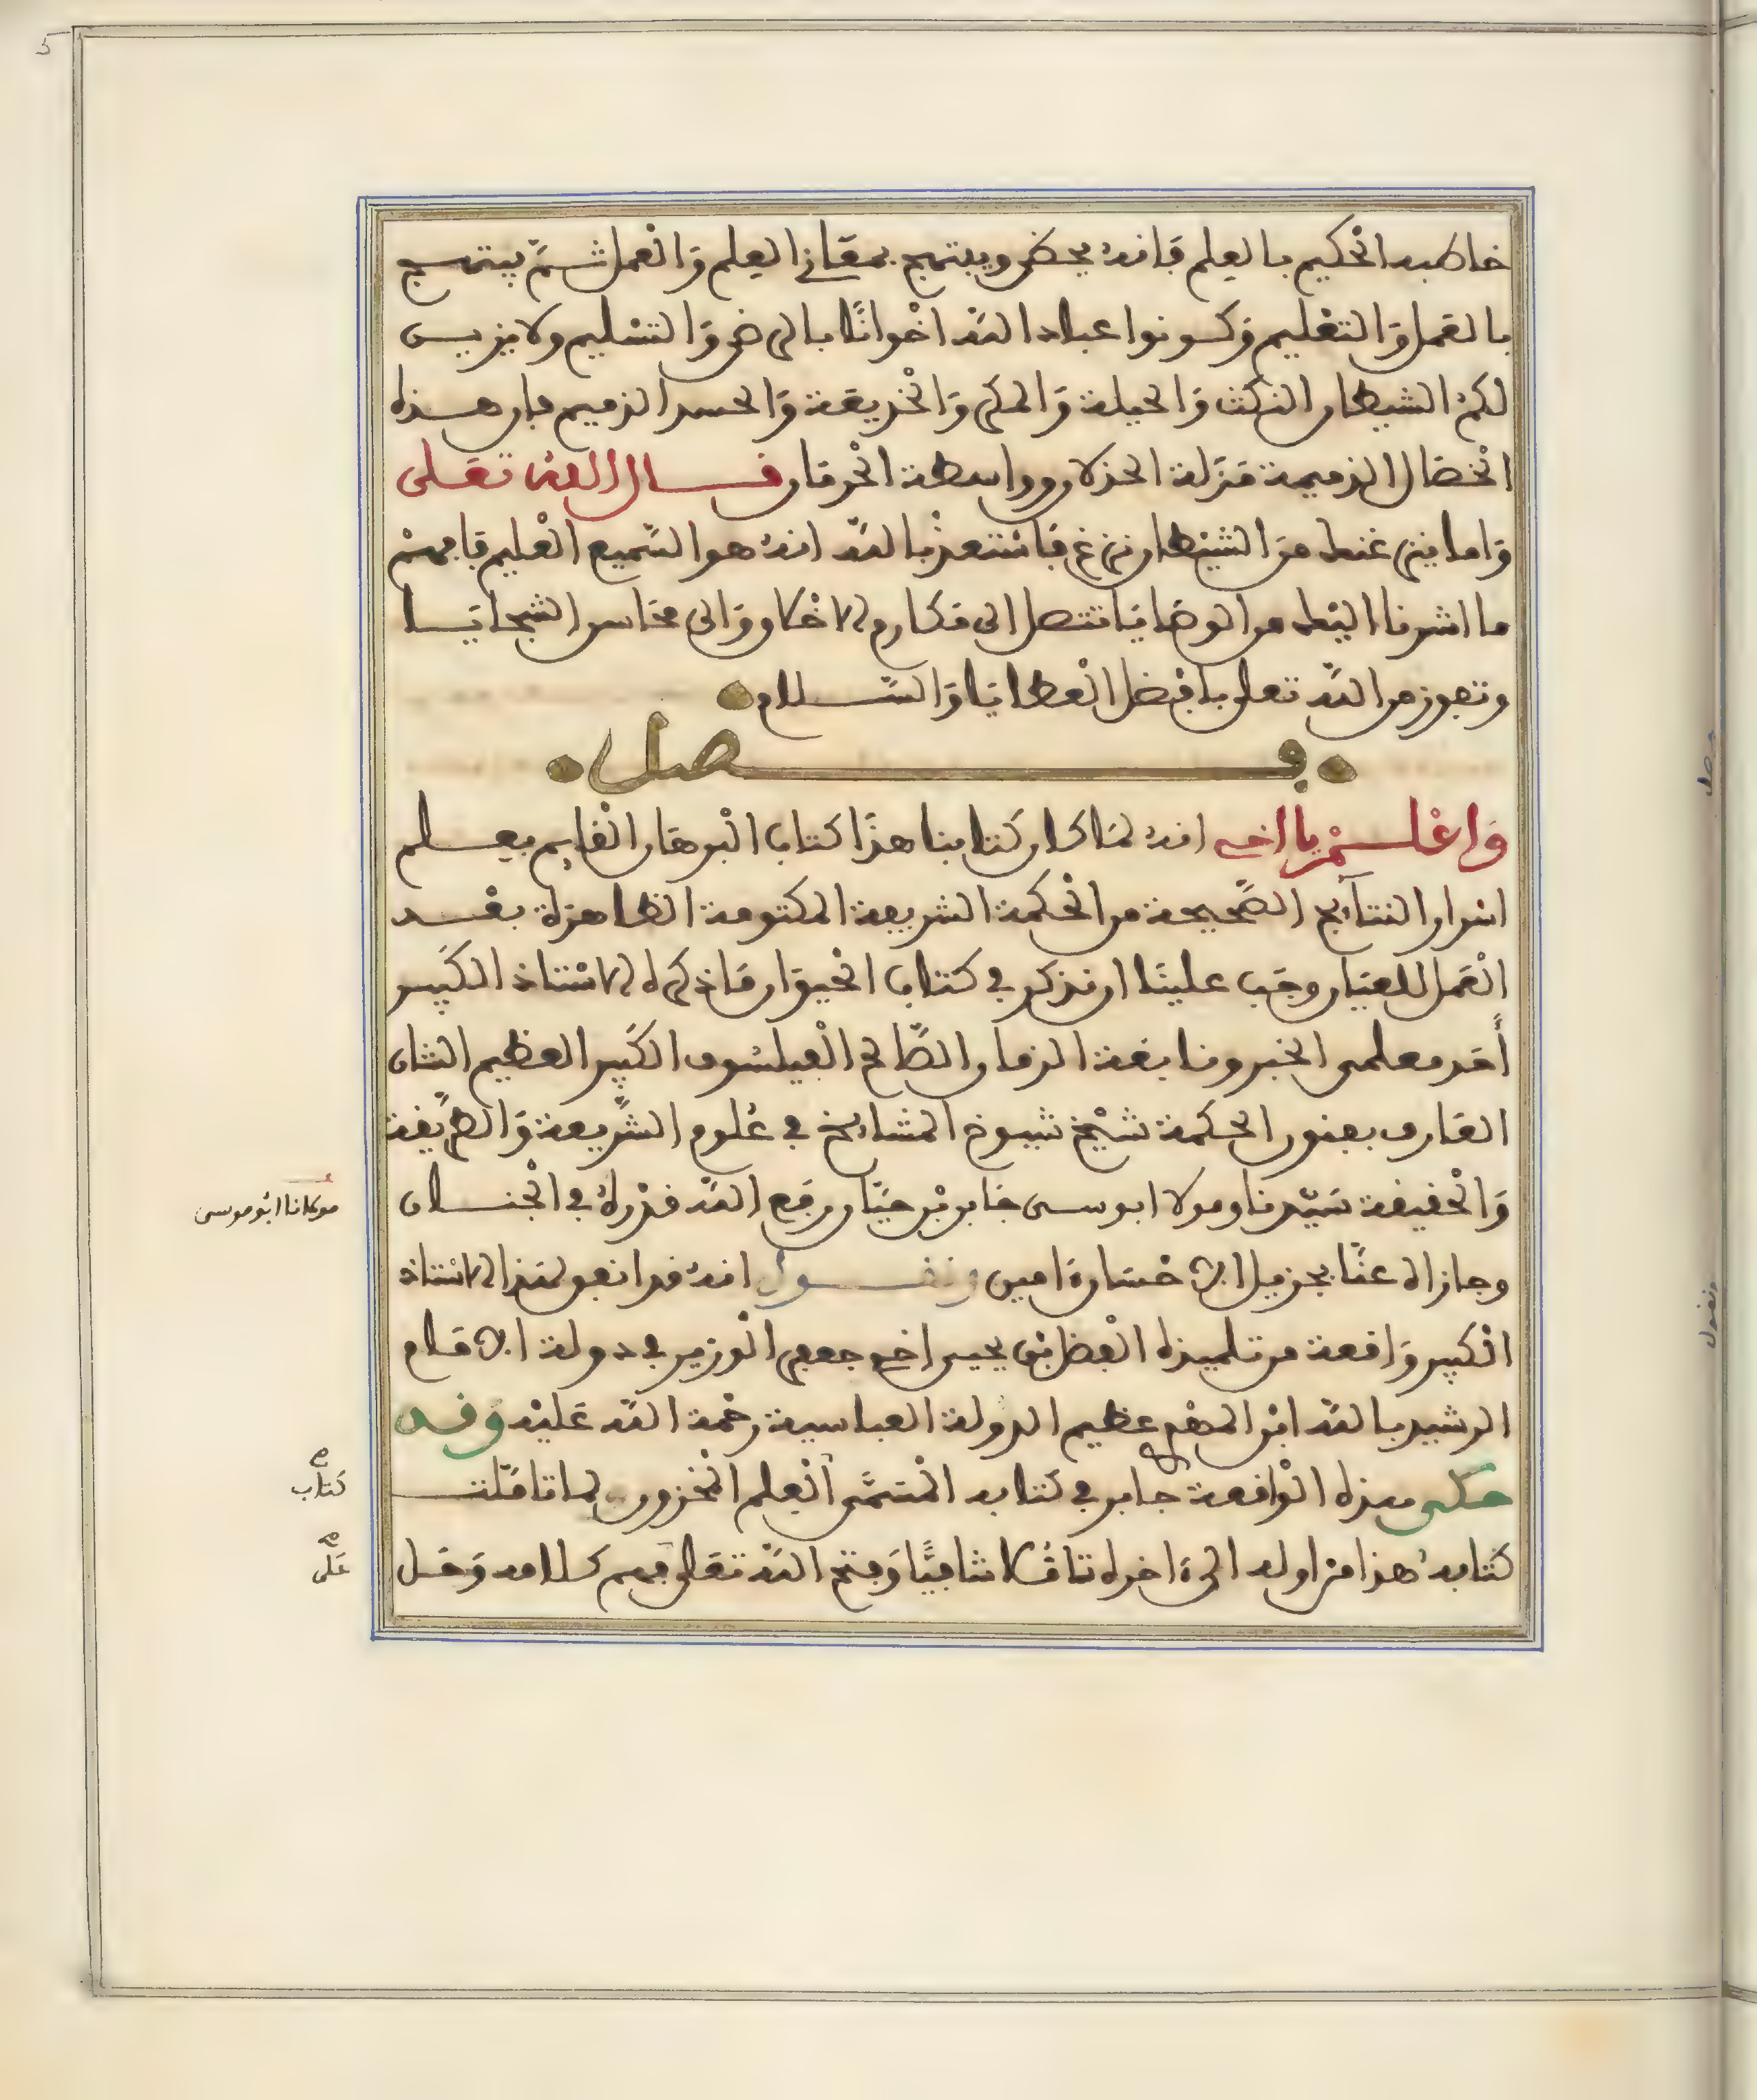 خاطبه الحكيم بالعلم فانه يحضى ويبتهج بمعانى العلم والعمل ثم يبتهج
بالعمل والتعليم وكونوا عباد الله اخوانا بالرضى والتسليم ولا يزين
لكم الشيطان النكث والحيلة والمكر والخديعة والحسد الذميم فان هذه
الخصال الذميمة منزلة الخذلان وواسطة الحرمان قال الله تعلى
واما ينزغنك من الشيطان نزغ فاستعذ بالله انه هو السميع العليم فافهم
ما اشرنا اليك من الوصايا تتصل الى مكارم الاخلاق والى محاسن السجايا
وتفوز من الله تعلى بافضل العطايا والسلام
فصل
واعلم يا اخى انه لما كان كتابنا هذا كتاب البرهان القايم بعلم
اسرار النتآيج الصحيحة من الحكمة الشريفة المكتومة الظاهرة بعد
العمل للعيان وجب علينا ان نذكر في كتاب الحيوان ماذكره الاستاذ الكبير
أحد معلمى الخير ونابغة الزمان الصالح الفيلسوف الكبير العظيم الشان
العارف بفنون الحكمة شيخ شيوخ المشايخ في علوم الشريعة والطريقة
والحقيقة سيدنا ومولا ابو سى جابر بن حيان رفع الله قدره في الجنان
مولانا ابو موسى
وجازاه عنا بجزيل الاحسان امين ونقول انه قد اتفق لهذا الاستاذ
الكبير واقعة مع تلميذه الفضل بن يحيى اخى جعفر الوزير في دولة الامام
الرشيد بالله ابن المهدى عظيم الدولة العباسية رحمة الله عليه وقد
حكى هذه الواقعة جابر في كتابه المسمى العلم المخزون لما تاملت
كتاب
كتابه هذا من اوله الى اخره تاملا شافيا وفتح الله تعالى بفهم كلامه وحل
على